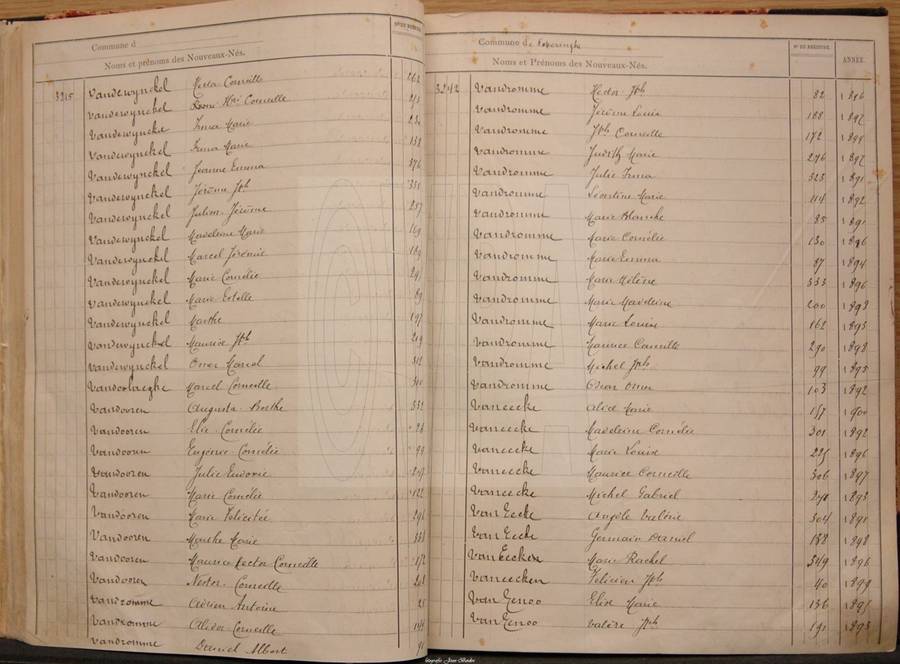 Commune d
Noms et prénoms des Nouveaux-Nés.
3215 Vandewynckel Corneille 262
Vandewynckel Corneille 213
Vandewynckel Irma Marie
Vandewynckel Irma Marie 138
Vandewynckel Jeanne Emma 376
Vandewynckel Jérôme Jph
Vandewynckel Julien Jérôme 257
Vandewynckel Madeleine Marie 169
Vandewynckel Marcel Jérémie
Vandewynckel Marie Cornélie
Vandewynckel Marie Estelle 89
Vandewynckel Marthe 197
Vandewynckel Maurice Jph 219
Vandewynckel Omer Marcel
Marcel Corneille
Vandooren Augusta Berthe 332
Vandooren Elie Cornélie
Vandooren Eugénie Cornélie 99
Vandooren Julie
Vandooren Marie Cornélie 122
Vandooren Marie Félicitée 296
Vandooren Marthe Marie 338
Vandooren Maurice Hector Corneille 172
Vandooren Nestor Corneille
Vandromme Adrien Antoine
Vandromme Alidor Corneille
Vandromme Daniel Albert
Commune de Poperinghe
Noms et Prénoms des Nouveaux-Nés.
N° DU REGISTRE
ANNÉE
3242 Vandromme Hector Jph 82 1896
Vandromme Jérôme Louis 188 1897
Vandromme Jph Corneille 172
Vandromme Judith Marie 276 1897
Vandromme Julie Irma 323 1891
Vandromme Léontine Marie 114 1892
Vandromme Marie Blanche 85 1891
Vandromme Marie Cornélie 130 1896
Vandromme Marie Emma 87 1894
Vandromme Marie Hélène 333 1896
Vandromme Marie Madeleine 200 1898
Vandromme Marie Louise 162 1895
Vandromme Maurice Corneille 290 1898
Vandromme Michel Jph 99 1895
Vandromme Oscar Omer 103 1892
Vaneecke Alice Marie 157 1900
Vaneecke Madeleine Cornélie 301 1892
Vaneecke Marie Louise 225 1896
Vaneecke Maurice Corneille 306 1897
Vaneecke Michel Gabriel 1893
Van Eecke Angèle Valérie 304 1891
Van Eecke Germain Daniel 188 1898
Van Eecken Marie Rachel 349 1896
Vaneecken Félicien Jph 40 1899
Van Eenoo Elise Marie 136 1897
Van Eenoo Valère Jph 191 1893